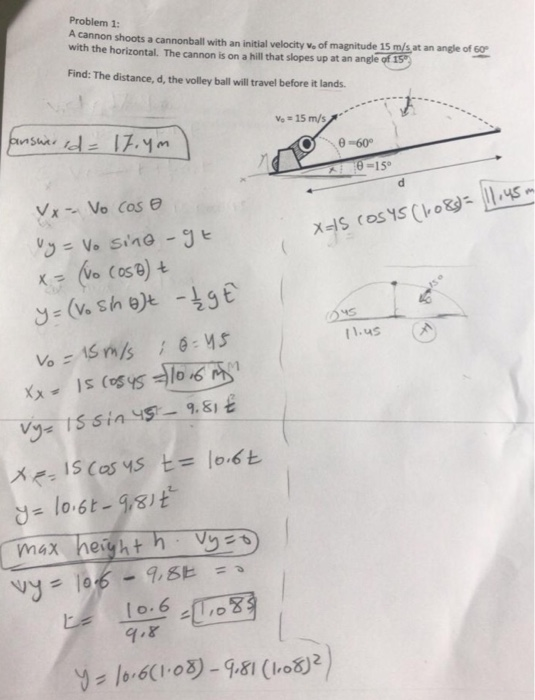 Problem 1:
A cannon shoots a cannonball with an initial velocity v₀ of magnitude 15 m/s at an angle of 60°
with the horizontal. The cannon is on a hill that slopes up at an angle of 15°.
Find: The distance, d, the volley ball will travel before it lands.
answer d = 17.4m
V₀ = 15 m/s
θ=60°
θ=15°
d
Vx = Vo cos θ
Vy = Vo sinθ - gt
x = (Vo cosθ) t
y = (Vo Sin θ)t - ½gt²
Vo = 15m/s ; θ = 45
x = 15 cos45 (1.08s) = 11.45 m
45
15°
11.45
Xx = 15 cos45 = 10.6 m
Vy = 15 sin 45 - 9.81 t
x = 15 cos 45 t = 10.6t
y = 10.6t - 9.81t²
max height h. Vy=0
Vy = 10.6 - 9.8t = 0
t = 10.6 / 9.8 = 1.08s
y = 10.6(1.08) - 9.81 (1.08)²)